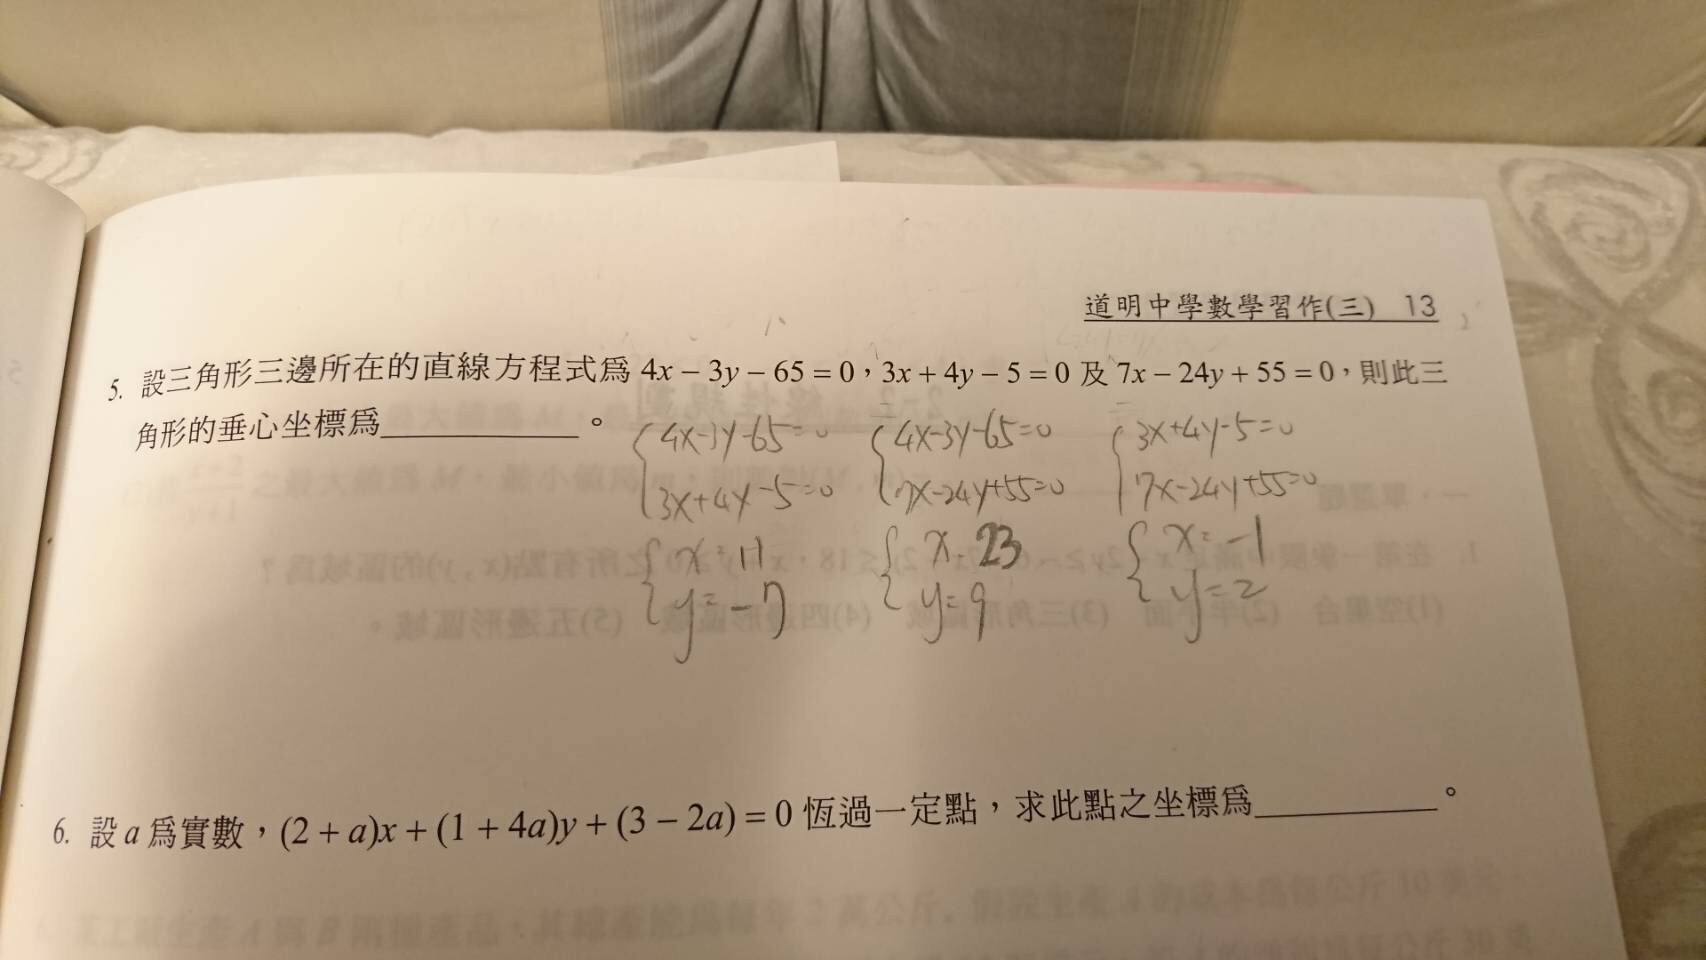 道明中學數學習作(三) 13
5. 設三角形三邊所在的直線方程式為 4x − 3y − 65 = 0，3x + 4y − 5 = 0 及 7x − 24y + 55 = 0，則此三
角形的垂心坐標為__________。
{4x-3y-65=0 {4x-3y-65=0 {3x+4y-5=0
3x+4y-5=0 7x-24y+55=0 7x-24y+55=0
{x=11 {x=23 {x=-1
y=-7 y=9 y=2
6. 設 a 為實數，(2 + a)x + (1 + 4a)y + (3 − 2a) = 0 恆過一定點，求此點之坐標為__________。